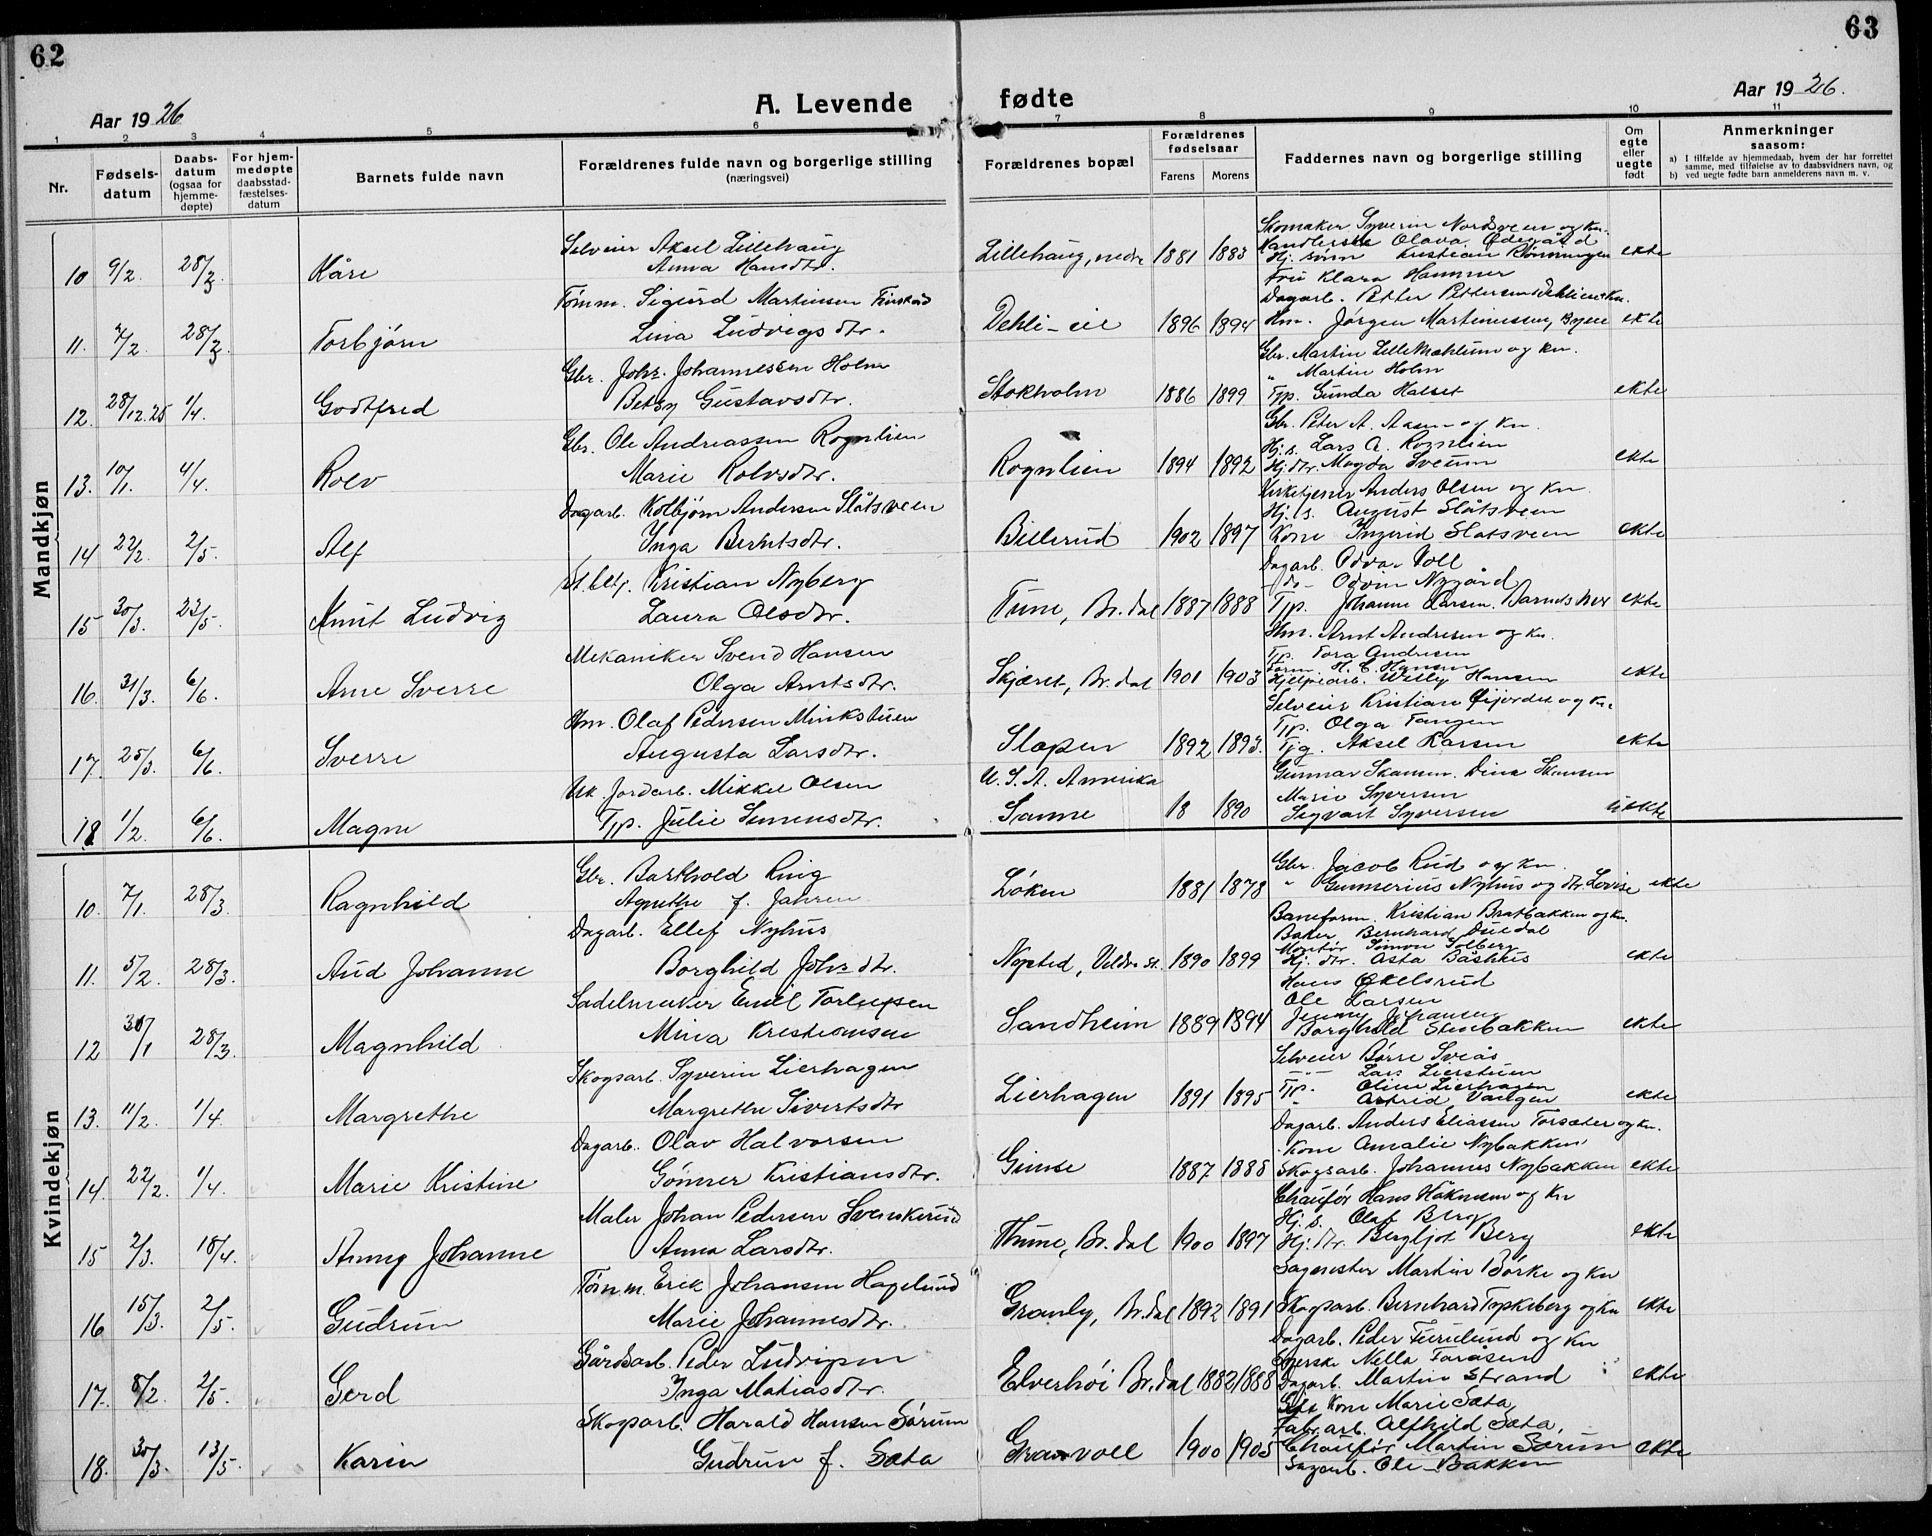 62
63
Aar 1926
A. Levende fødte
Aar 1926.
1 2 3 4 5 6 7 8 9 10 11
Nr.
Fødsels-datum
Daabs-datum (ogsaa for hjemme-døpte)
For hjem-medøpte daabsstad-fæstelses-datum
Barnets fulde navn
Forældrenes fulde navn og borgerlige stilling (næringsvei)
Forældrenes bopæl
Forældrenes fødselsaar
Farens Morens
Faddernes navn og borgerlige stilling
Om egte eller uegte født
Anmerkninger saasom:
a) I tilfælde av hjemmedaab, hvem der har forrettet samme, med tilføielse av to daabsvidners navn, og
b) ved uegte fødte barn anmelderens navn m. v.
Mandkjøn
10 9/2. 28/3. Kåre
Selveier Aksel Lillehaug
Anna Hansdtr.
Lillehaug, nedre 1881 1883
Skomaker Syverin Nordsveen og kn.
Handlerske Olava Ødegård
Hj. sønn Kristian Rønningen
Fru Klara Hammer
ekte
11. 2/2. 28/3. Torbjørn
Tømm. Sigurd Martinsen
Lina Ludvigsdtr.
Dehli-eie 1896 1894
Dagarb. Petter Pettersen Dehlieie og kn.
Hm. Jørgen Martinussen,
ekte
12. 28/12.25 1/4. Godtfred
Gbr. Johs. Johannessen Holm
Betsy Gustavsdtr.
Stokholm 1886 1899
Gbr. Martin Lille Mæhlum og kn.
" Martin Holm
Tjp. Gunda Halset
ekte
13. 10/1. 4/4. Rolv
Gbr. Ole Andreassen Rognlien
Marie Rolvsdtr.
Rognlien 1894 1892
Gbr. Peter A. Aasen og kn.
Hj. s. Lars A. Rognlien
Hj. dtr. Magda Sveum
ekte
14 22/2. 2/5. Alf
Dagarb. Kolbjørn Andersen Slåtsveen
Inga Berntsdtr.
Billerud 1902 1897
Kirketjener Anders Olsen og kn.
Hj. s. August Slåtsveen
Kone Ingrid Slåtsveen
ekte
15 30/3. 23/5. Knut Ludvig
Kristian Nyberg
Laura Olsdtr.
Tune, Br.dal 1887 1888
Dagarb. Odvar Voll
- do - Odvin Nygård
Tjp. Johanne Larsen. Barnets mor
ekte
16. 31/3. 6/6. Arne Sverre
Mekaniker Svend Hansen
Olga Arntsdtr.
Skjæret, Br.dal 1901 1903
Hm. Arnt Andresen og kn.
Tjp. Tora Andresen
Form. H. C. Hansen
Hjelpearb. Willy Hansen
ekte
17. 25/3. 6/6. Sverre
Hm. Olaf Pedersen Minkstuen
Augusta Larsdtr.
Slopen 1892 1893.
Selveier Kristian Gijordet og kn.
Tjp. Olga Tangen
Tjg. Aksel Larsen
ekte
18 1/2. 6/6. Magne
Uk. Jordarb. Mikkel Olsen
Tjp. Julie Simensdtr.
U. S. A. Amerika
Sanne 18 1890
Gunnar Skansen. Dina Skansen
Marie Syversen
Sigvart Syversen
uekte
Kvindekjøn
10. 7/1. 28/3. Ragnhild
Gbr. Barthold Ring
Agnethe f. Jahren
Løken 1881 1878
Gbr. Jacob Rud og kn.
" Gunnerius Nyhus og dtr. Lovise
ekte
11. 5/2. 28/3. Aud Johanne
Dagarb. Ellef Nyhus
Borghild Johs.dtr.
Nysted, Veldre st. 1890 1899
Baneform. Kristian Bratbakken og kn.
Baker Bernhard Dueдal
Montør Simon Solberg
Hj. dtr. Asta Båshus
ekte
12 30/1 28/3. Magnhild
Sadelmaker Emil Torleifsen
Mina Kristiansen
Sandheim 1889 1894
Hans Økelsrud
Ole Larsen
Jenny Johansen
Borghild Stenbakken
ekte
13. 11/2. 1/4. Margrethe
Skogsarb. Syverin Lierhagen
Margrethe Sivertsdtr
Lierhagen 1891 1895
Selveier Børre Sveås
- " - Lars Lierstuen
Tjp. Oline Lierhagen
" Astrid Vangen
ekte
14. 22/2. 1/4. Marie Kristine
Dagarb. Olav Halvorsen
Gønner Kristiansdtr.
Gimse 1887. 1888
Dagarb. Anders Eliassen Torsæter og kn.
Kone Amalie Nybakken
Skogsarb. Johannes Nybakken
ekte
15 2/3. 18/4. Anny Johanne
Maler Johan Pedersen Svenskerud
Anna Larsdtr.
Thune, Br.dal 1900 1897
Chaufør Hans Håkensen og kn
Hj. s. Olaf Berg
Hj. dtr. Bergljot Berg
ekte
16 15/3. 2/5. Gudrun
Tømm. Erik Johansen Hagelund
Marie Johannesdtr.
Granly, Br.dal 1892 1891
Sagmester Martin Børke og kn
Skogsarb. Bernhard Topkeberg og kn
ekte
17. 8/2. 2/5. Gerd
Gårdsarb. Peder Ludvigsen
Inga Matiasdtr.
Elverhøi Br.dal 1882 1888
Dagarb. Peder Furulund og kn
Syerske Nella Foråsen
Dagarb. Martin Strand
ekte
18. 30/3. 13/5. Karin
Skogsarb. Harald Hansen Sørum
Gudrun f. Sæta
Granvoll 1900 1905
Kone Marie Sæta
Fabr.arb. Alfhild Sæta
Chaufør Martin Sørum
Sagarb. Ole Bakken
ekte